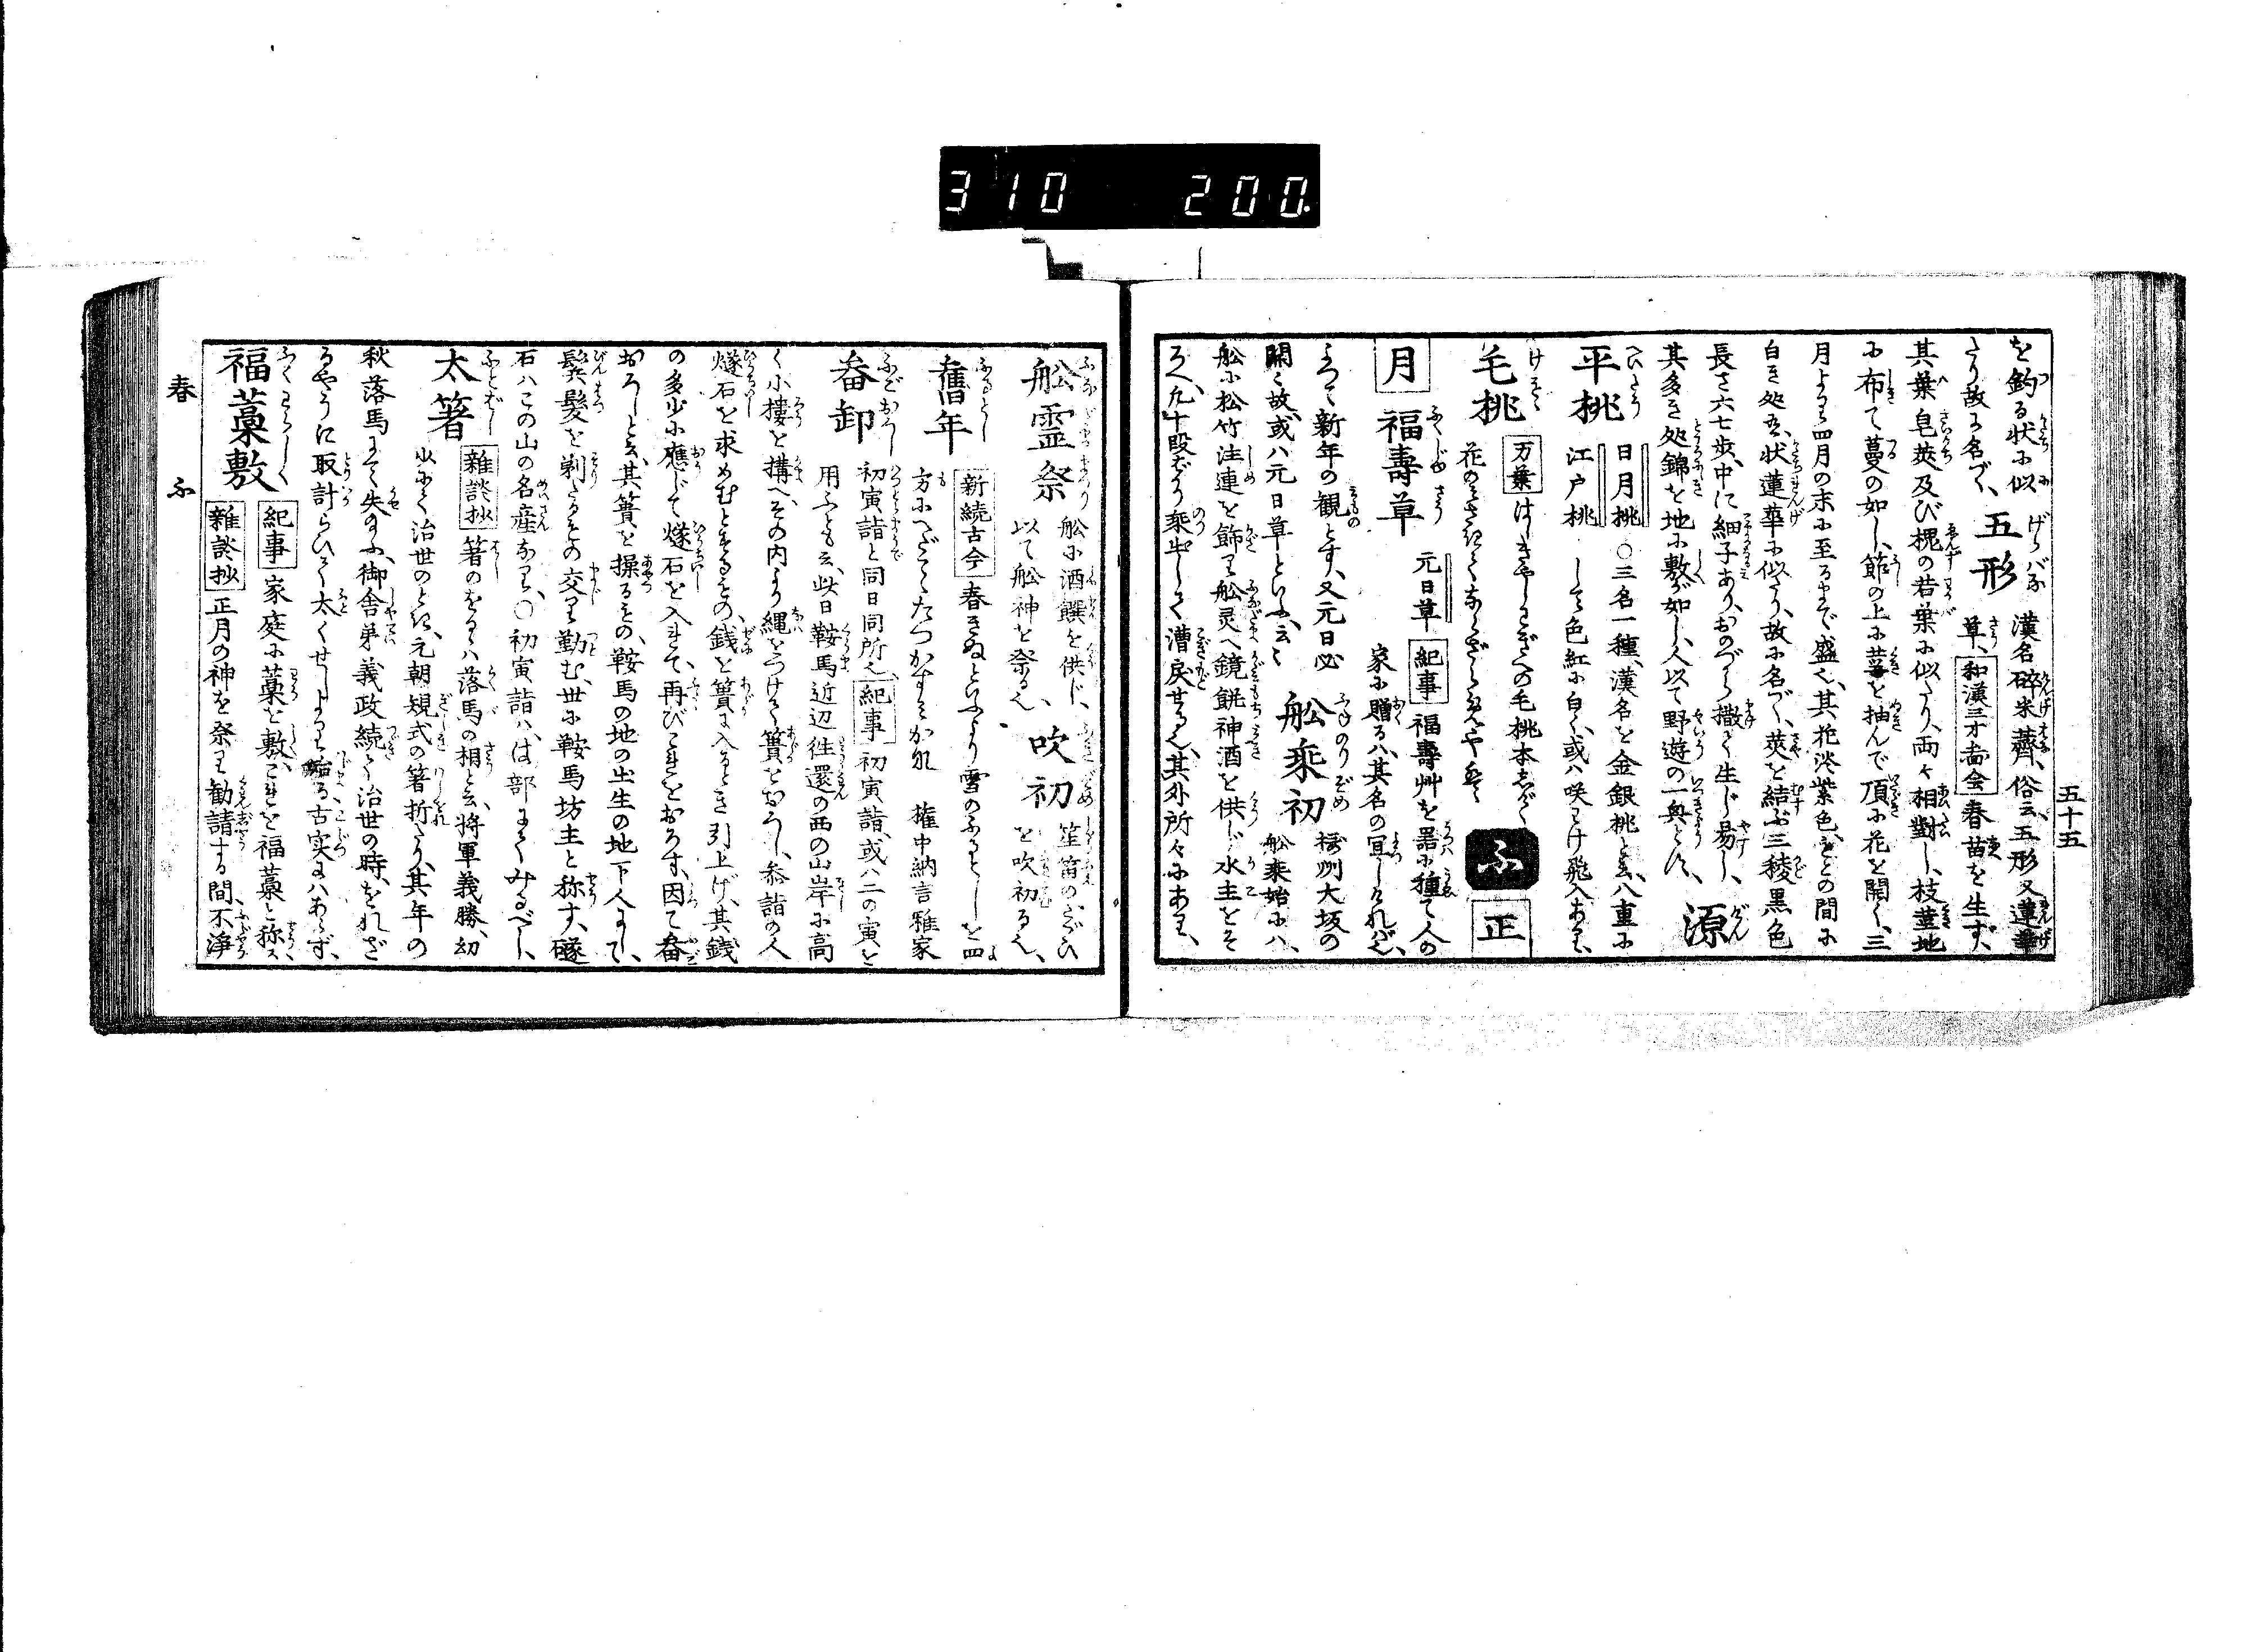 310 200.
五十五
を釣る状に似
たり故に名づく、
五形
漢名砕米薺、俗云五形又蓮華
草、和漢三才啚会春苗を生ず、
其葉皂莢及び槐の若葉に似たり、両々相對し、枝莖地
に布て蔓の如し、節の上に莖を抽んで頂に花を開く、三
月より四月の末に至るまで盛也、其花淡紫色、
白き処有、状蓮華に似たり、故に名づく、莢を結ぶ三稜黒色
長さ六七歩、中に細子あり、おのづから撒て生じ易し、
其多き処錦を地に敷が如し、人以て野遊の一興とす、
源
平桃
日月桃
江戸桃
〇三名一種、漢名を金銀桃と云、八重に
して色紅に白く、或ハ咲わけ飛入あり、
毛桃
万葉
はしきやしわぎへの毛桃本しげく
花のみさきてならざらめやも
ふ
正
月
福壽草
元日草
紀事
福壽艸を器に種て人の
家に贈るハ、其名の宜しければ也、
よつて新年の観とす、又元日必
開く故、或ハ元日草といふ云々
船乗初
摂州大坂の
船乗始にハ、
船に松竹注連を飾り船灵へ鏡餅神酒を供じ水主をそ
ろへ、九十段ばかり乗出して漕戻せる也、其外所々にあり、
船霊祭
船に酒饌を供じ、
以て船神を祭る也、
吹初
笙笛のるひ
を吹初る也、
舊年
新続古今
春きぬといふより雪のふるとしを四
方にへだてゝたつかすみかな 権中納言雅家
畚卸
初寅詣と同日同所也紀事初寅詣、或ハ二の寅を
用ふとも云、此日鞍馬近辺往還の西の山岸に高
く小楼を搆へ、その内より縄をつけて簣をおろし、参詣の人
燧石を求めむとするもの、銭を簣に入るとき引上げ、其銭
の多少に應じて燧石を入れて、再びこれをおろす、因て畚
おろしと云、其簣を操るもの、鞍馬の地の出生の地下人にて、
鬂髪を剃りその交り勤む、世に鞍馬坊主と称す、燧
石ハこの山の名産なり、〇初寅詣ハ、は部にてみるべし、
太箸
雑談抄
箸のをるゝハ落馬の相と云、将軍義勝、幼
少にて治世のとき、元朝規式の箸折たり、其年の
秋落馬にて失給ふ、御舎弟義政続て治世の時、をれざ
るやうに取計らひて太くせしより始る古実にハあらず、
福藁敷
紀事
家庭に藁を敷、これを福藁と称ス、
雑談抄
正月の神を祭り勧請する間、不浄
春 ふ